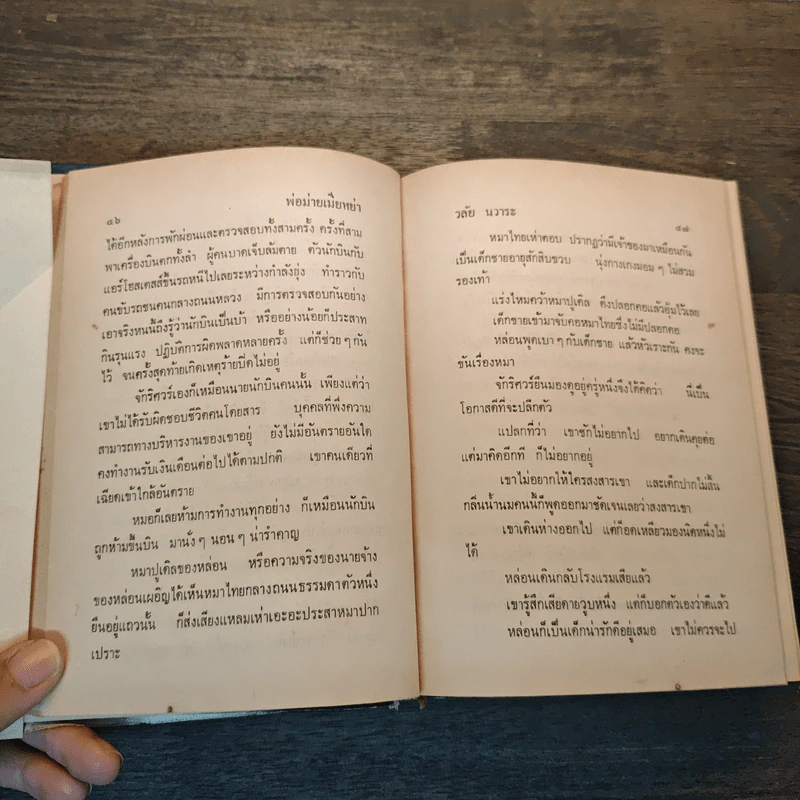 ๔๖
พ่อม่ายเมียหย่า
ได้อีกหลังการพักผ่อนและตรวจสอบทั้งสามครั้ง ครั้งที่สาม
พาเครื่องบินตกทั้งลำ ผู้คนบาดเจ็บล้มตาย ตัวนักบินกับ
แอร์โฮสเตสส์ขึ้นรถหนีไปเลยระหว่างกำลังยุ่ง ทำราวกับ
คนขับรถชนคนกลางถนนหลวง มีการตรวจสอบกันอย่าง
เอาจริงหนนี้ถึงรู้ว่านักบินเป็นบ้า หรืออย่างน้อยก็ประสาท
กินรุนแรง ปฏิบัติการผิดพลาดหลายครั้ง แต่ก็ช่วยๆกัน
ไว้ จนครั้งสุดท้ายเกิดเหตุร้ายปิดไม่อยู่
จักริศวร์เองก็เหมือนนายนักบินคนนั้น เพียงแต่ว่า
เขาไม่ได้รับผิดชอบชีวิตคนโดยสาร บุคคลที่พึ่งความ
สามารถทางบริหารงานของเขาอยู่ ยังไม่มีอันตรายอันใด
คงทำงานรับเงินเดือนต่อไปได้ตามปกติ เขาคนเดียวที่
เฉียดเข้าใกล้อันตราย
หมอก็เลยห้ามการทำงานทุกอย่าง ก็เหมือนนักบิน
ถูกห้ามขึ้นบิน มานั่งๆ นอนๆ น่ารำคาญ
หมาปูเดิลของหล่อน หรือความจริงของนายจ้าง
ของหล่อนเผอิญได้เห็นหมาไทยกลางถนนธรรมดาตัวหนึ่ง
ยืนอยู่แถวนั้น ก็ส่งเสียงแหลมเห่าเอะอะประสาหมาปาก
เปราะ
วลัย นวาระ
๔๗
หมาไทยเห่าตอบ ปรากฏว่ามีเจ้าของมาเหมือนกัน
เป็นเด็กชายอายุสักสิบขวบ นุ่งกางเกงมอมๆ ไม่สวม
รองเท้า
แร่งไหมคว้าหมาปูเดิล ดึงปลอกคอแล้วอุ้มไว้เลย
เด็กชายเข้ามาจับคอหมาไทยซึ่งไม่มีปลอกคอ
หล่อนพูดเบาๆกับเด็กชาย แล้วหัวเราะกัน คงจะ
ขันเรื่องหมา
จักริศวร์ยืนมองดูอยู่ครู่หนึ่งจึงได้คิดว่า นี่เป็น
โอกาสดีที่จะปลีกตัว
แปลกที่ว่า เขาชักไม่อยากไป อยากเดินคุยต่อ
แต่มาคิดอีกที ก็ไม่อยากอยู่
เขาไม่อยากให้ใครสงสารเขา และเด็กปากไม่สิ้น
กลิ่นน้ำนมคนนี้ก็พูดออกมาชัดเจนเลยว่าสงสารเขา
เขาเดินห่างออกไป แต่ก็อดเหลียวมองนิดหนึ่งไม่
ได้
หล่อนเดินกลับโรงแรมเสียแล้ว
เขารู้สึกเสียดายวูบหนึ่ง แต่ก็บอกตัวเองว่าดีแล้ว
หล่อนก็เป็นเด็กน่ารักดีอยู่เสมอ เขาไม่ควรจะไป